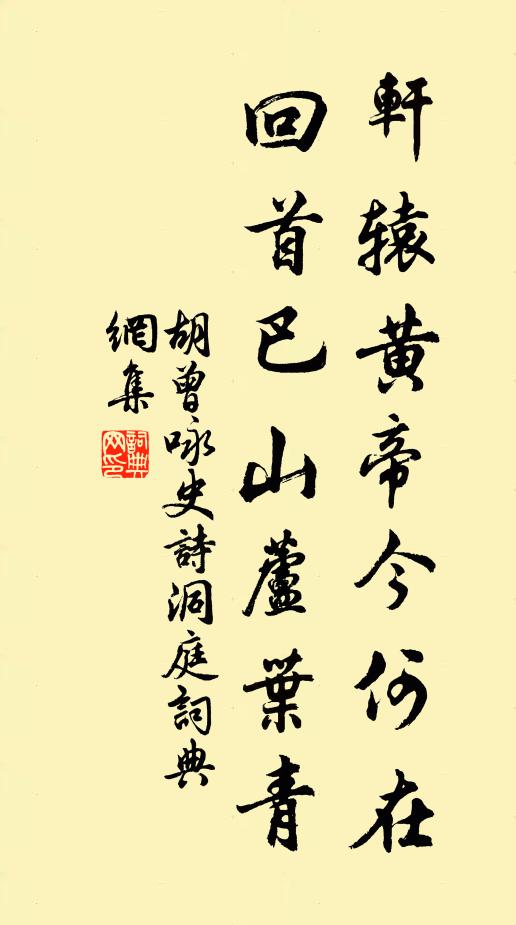 軒辕黃帝今何在
回首巴山蘆葉青
胡曾咏史詩洞庭詞典
網集
詞典
网印